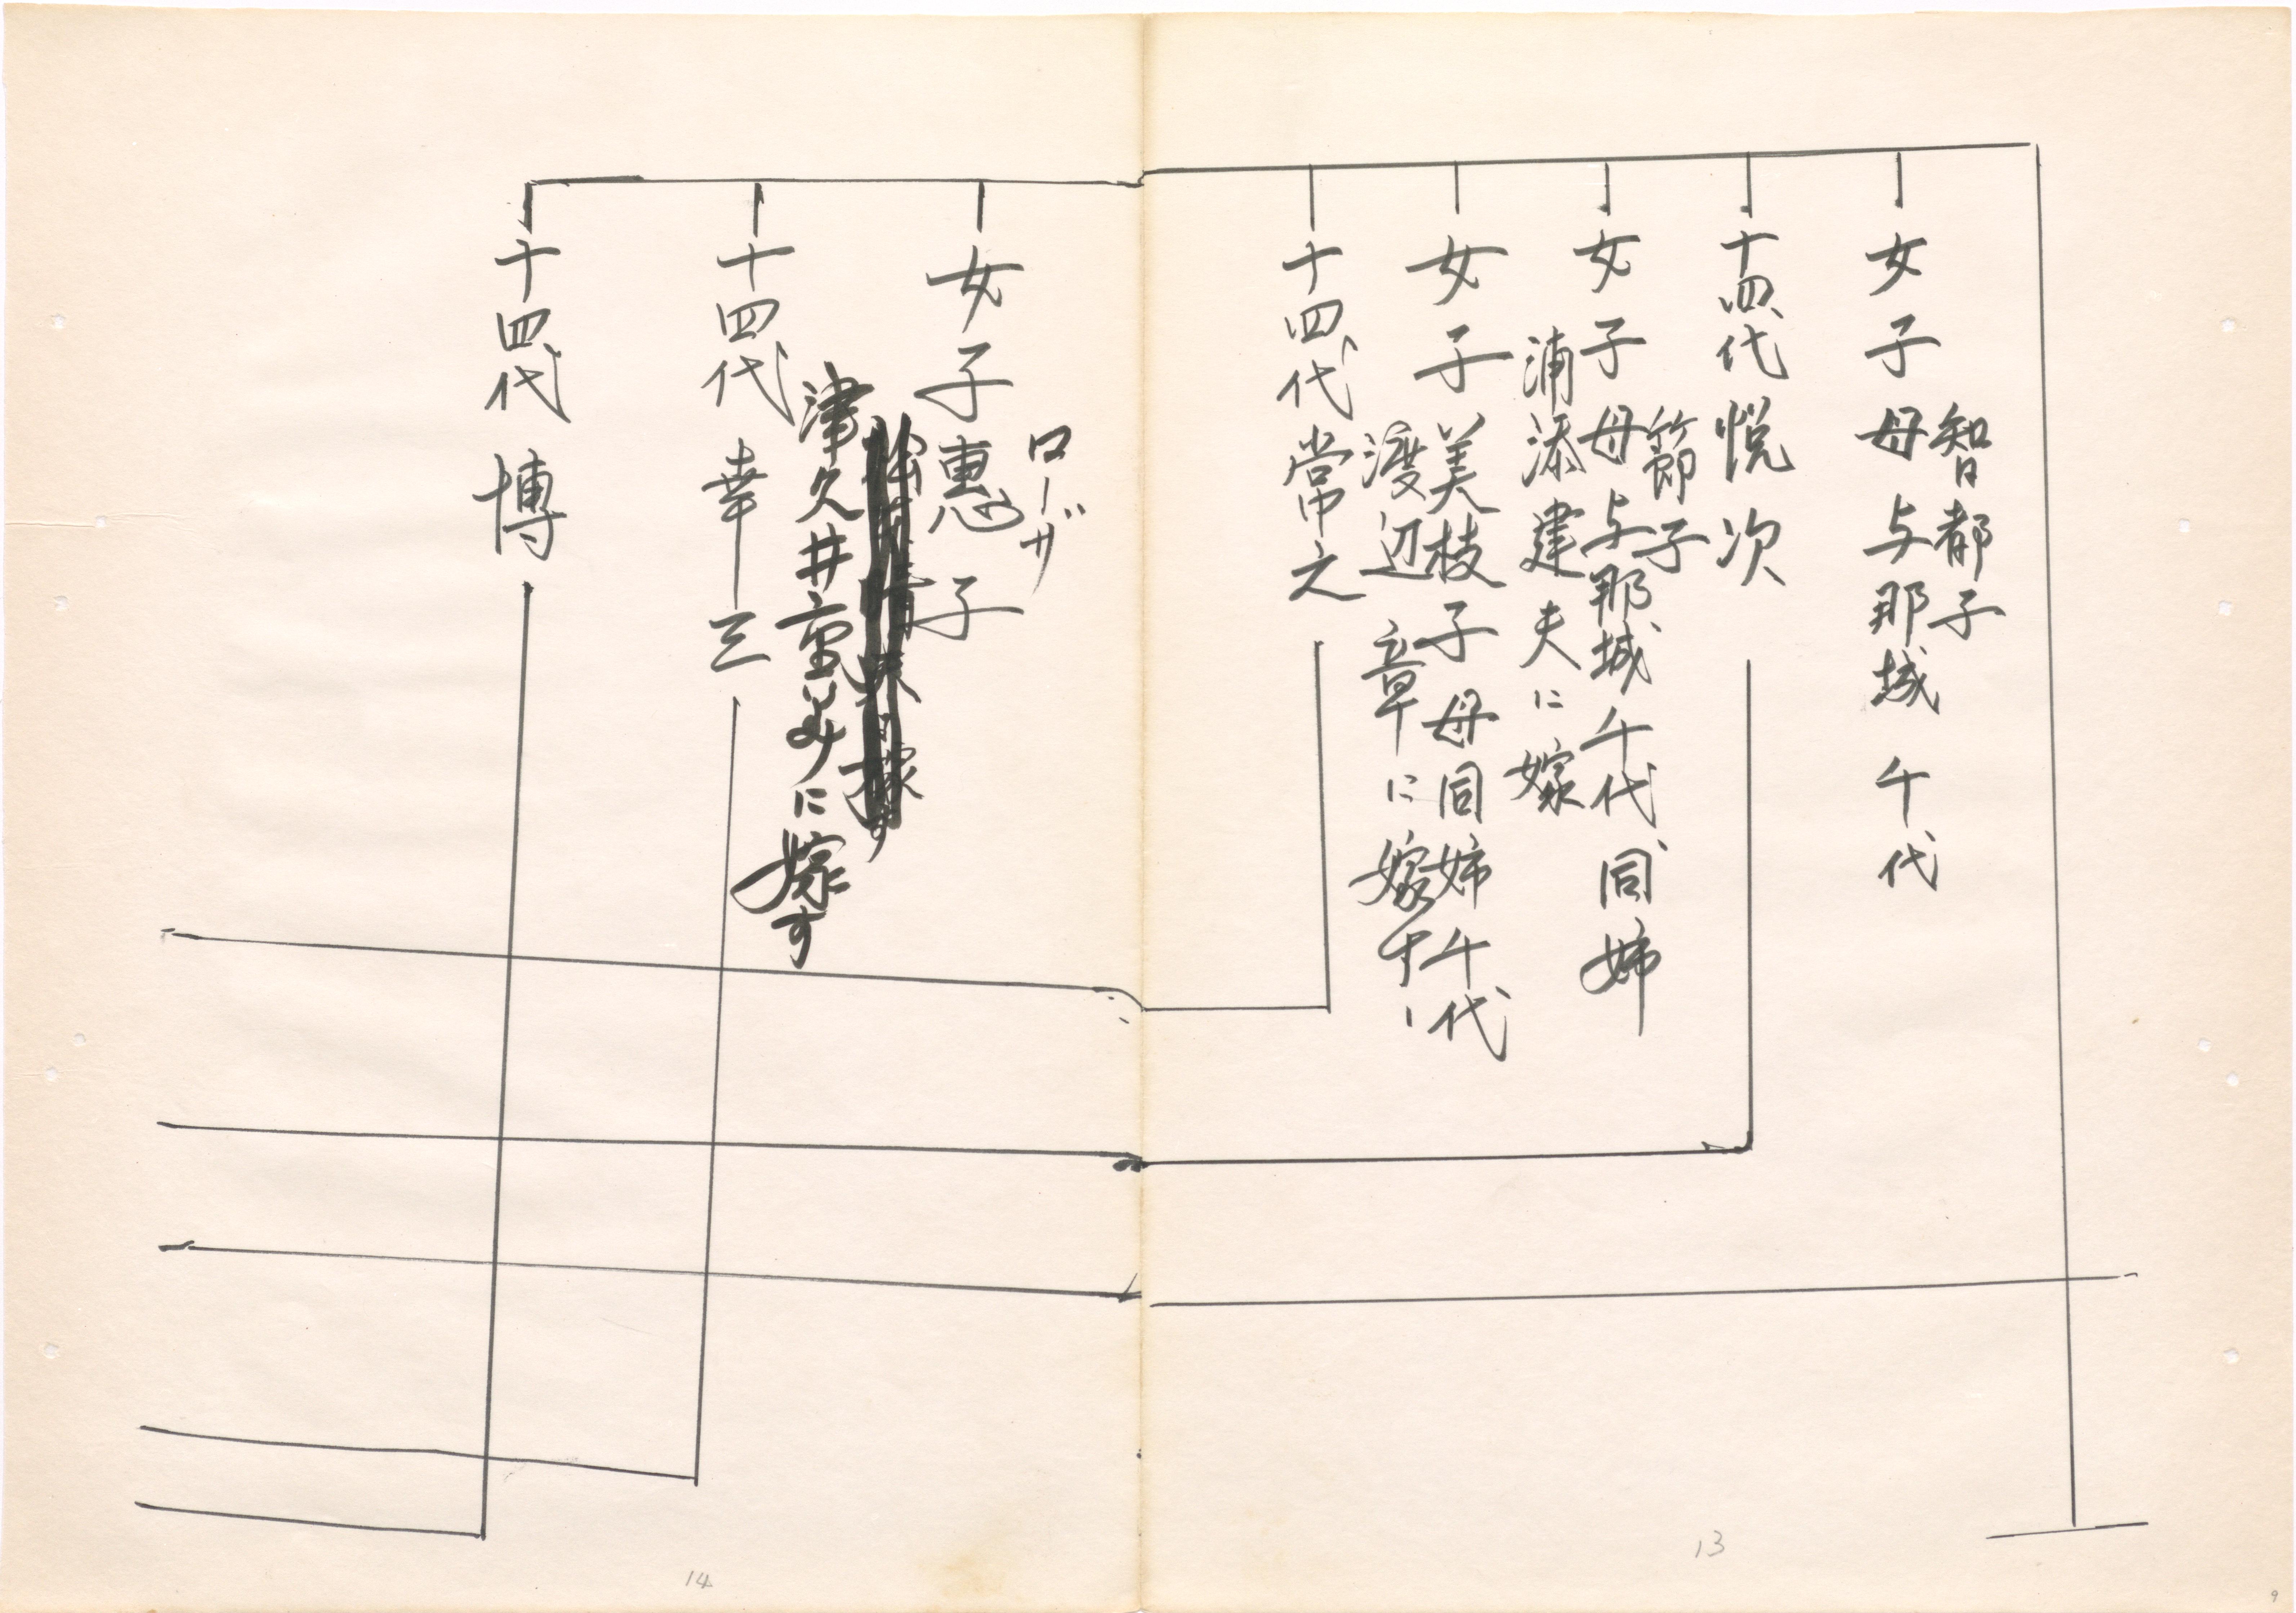 智都子
女子 母 与那城 千代
十四代 悦次
節子
女子 母 与那城 千代 同姉
浦添建夫に嫁
女子 美枝子 母同姉千代
渡辺 章に嫁す
十四代 常之
ローザ
女子 恵子
津久井重
に嫁す
十四代 幸三
十四代 博
13
14
9